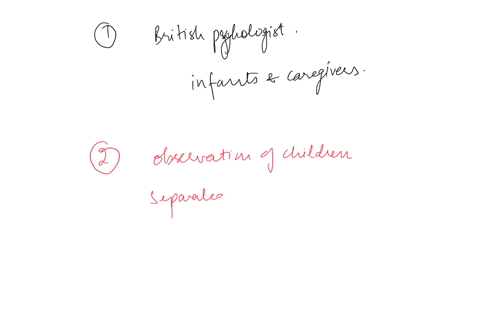 ① British pyhologist.
infants & caregivers.
② observation of children
separates